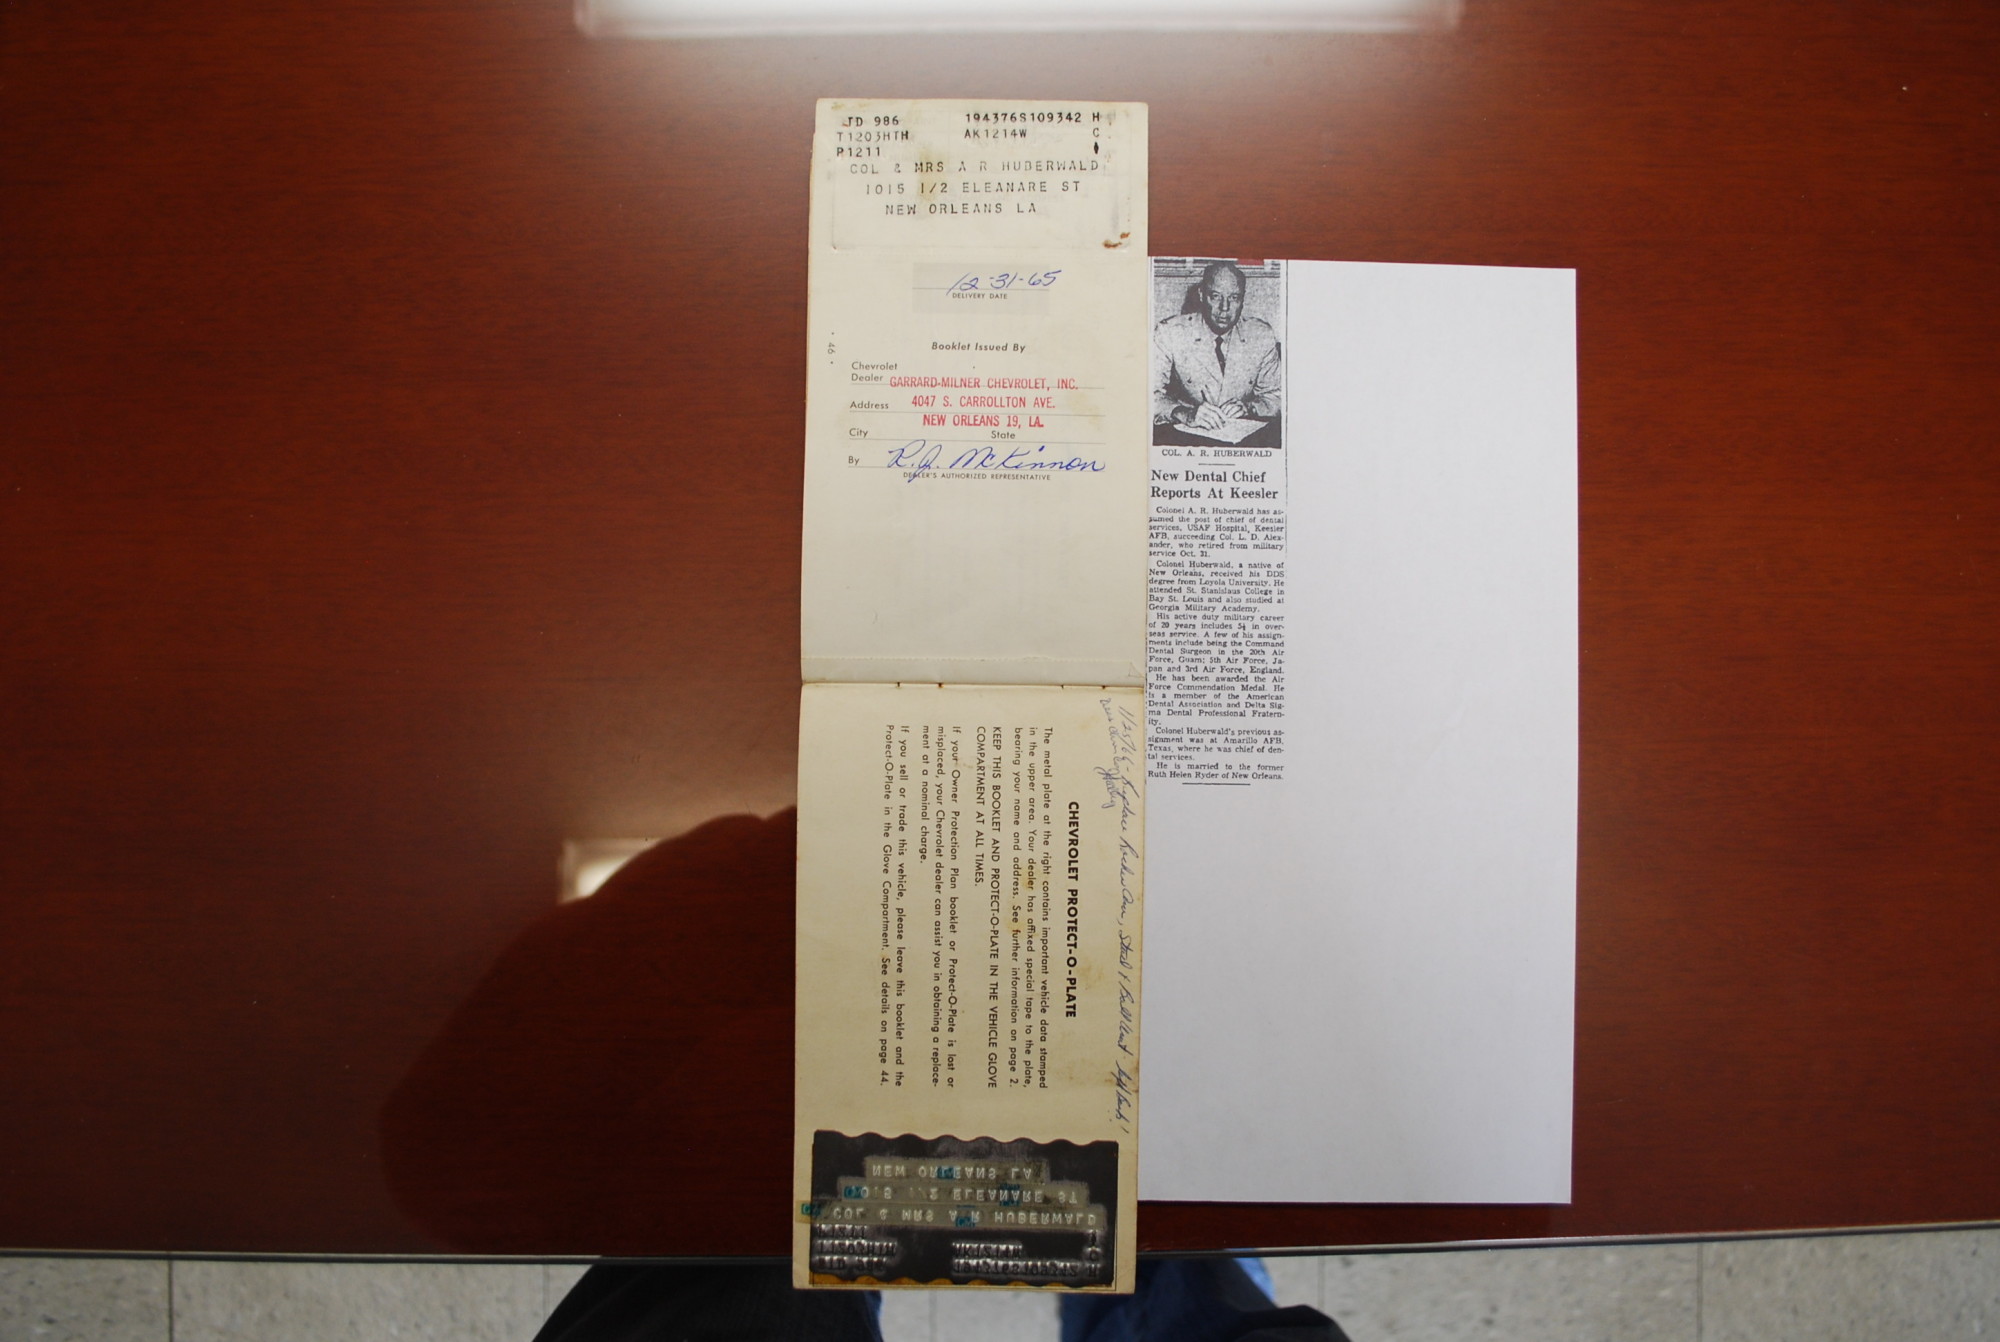 JD 986 194376S109342 H
T1203HTH AK1214W C
P1211
COL & MRS A R HUBERWALD
1015 1/2 ELEANARE ST
NEW ORLEANS LA
12-31-65
DELIVERY DATE
• 46 •
Booklet Issued By
Chevrolet
Dealer GARRARD-MILNER CHEVROLET, INC.
Address 4047 S. CARROLLTON AVE.
NEW ORLEANS 19, LA.
City State
By R.J. McKinnon
DEALER'S AUTHORIZED REPRESENTATIVE
CHEVROLET PROTECT-O-PLATE
The metal plate at the right contains important vehicle data stamped
in the upper area. Your dealer has affixed special tape to the plate,
bearing your name and address. See further information on page 2.
KEEP THIS BOOKLET AND PROTECT-O-PLATE IN THE VEHICLE GLOVE
COMPARTMENT AT ALL TIMES.
If your Owner Protection Plan booklet or Protect-O-Plate is lost or
misplaced, your Chevrolet dealer can assist you in obtaining a replace-
ment at a nominal charge.
If you sell or trade this vehicle, please leave this booklet and the
Protect-O-Plate in the Glove Compartment. See details on page 44.
1/25/66 - Replace
NEW ORLEANS LA
1/2 ELEANARE ST
COL & MRS A R HUBERWALD
COL. A. R. HUBERWALD
New Dental Chief
Reports At Keesler
Colonel A. R. Huberwald has as-
sumed the post of chief of dental
services, USAF Hospital, Keesler
AFB, succeeding Col. L. D. Alex-
ander, who retired from military
service Oct. 31.
Colonel Huberwald, a native of
New Orleans, received his DDS
degree from Loyola University. He
attended St. Stanislaus College in
Bay St. Louis and also studied at
Georgia Military Academy.
His active duty military career
of 20 years includes 5½ in over-
seas service. A few of his assign-
ments include being the Command
Dental Surgeon in the 20th Air
Force, Guam; 5th Air Force, Ja-
pan and 3rd Air Force, England.
He has been awarded the Air
Force Commendation Medal. He
is a member of the American
Dental Association and Delta Sig-
ma Dental Professional Fratern-
ity.
Colonel Huberwald's previous as-
signment was at Amarillo AFB,
Texas, where he was chief of den-
tal services.
He is married to the former
Ruth Helen Ryder of New Orleans.